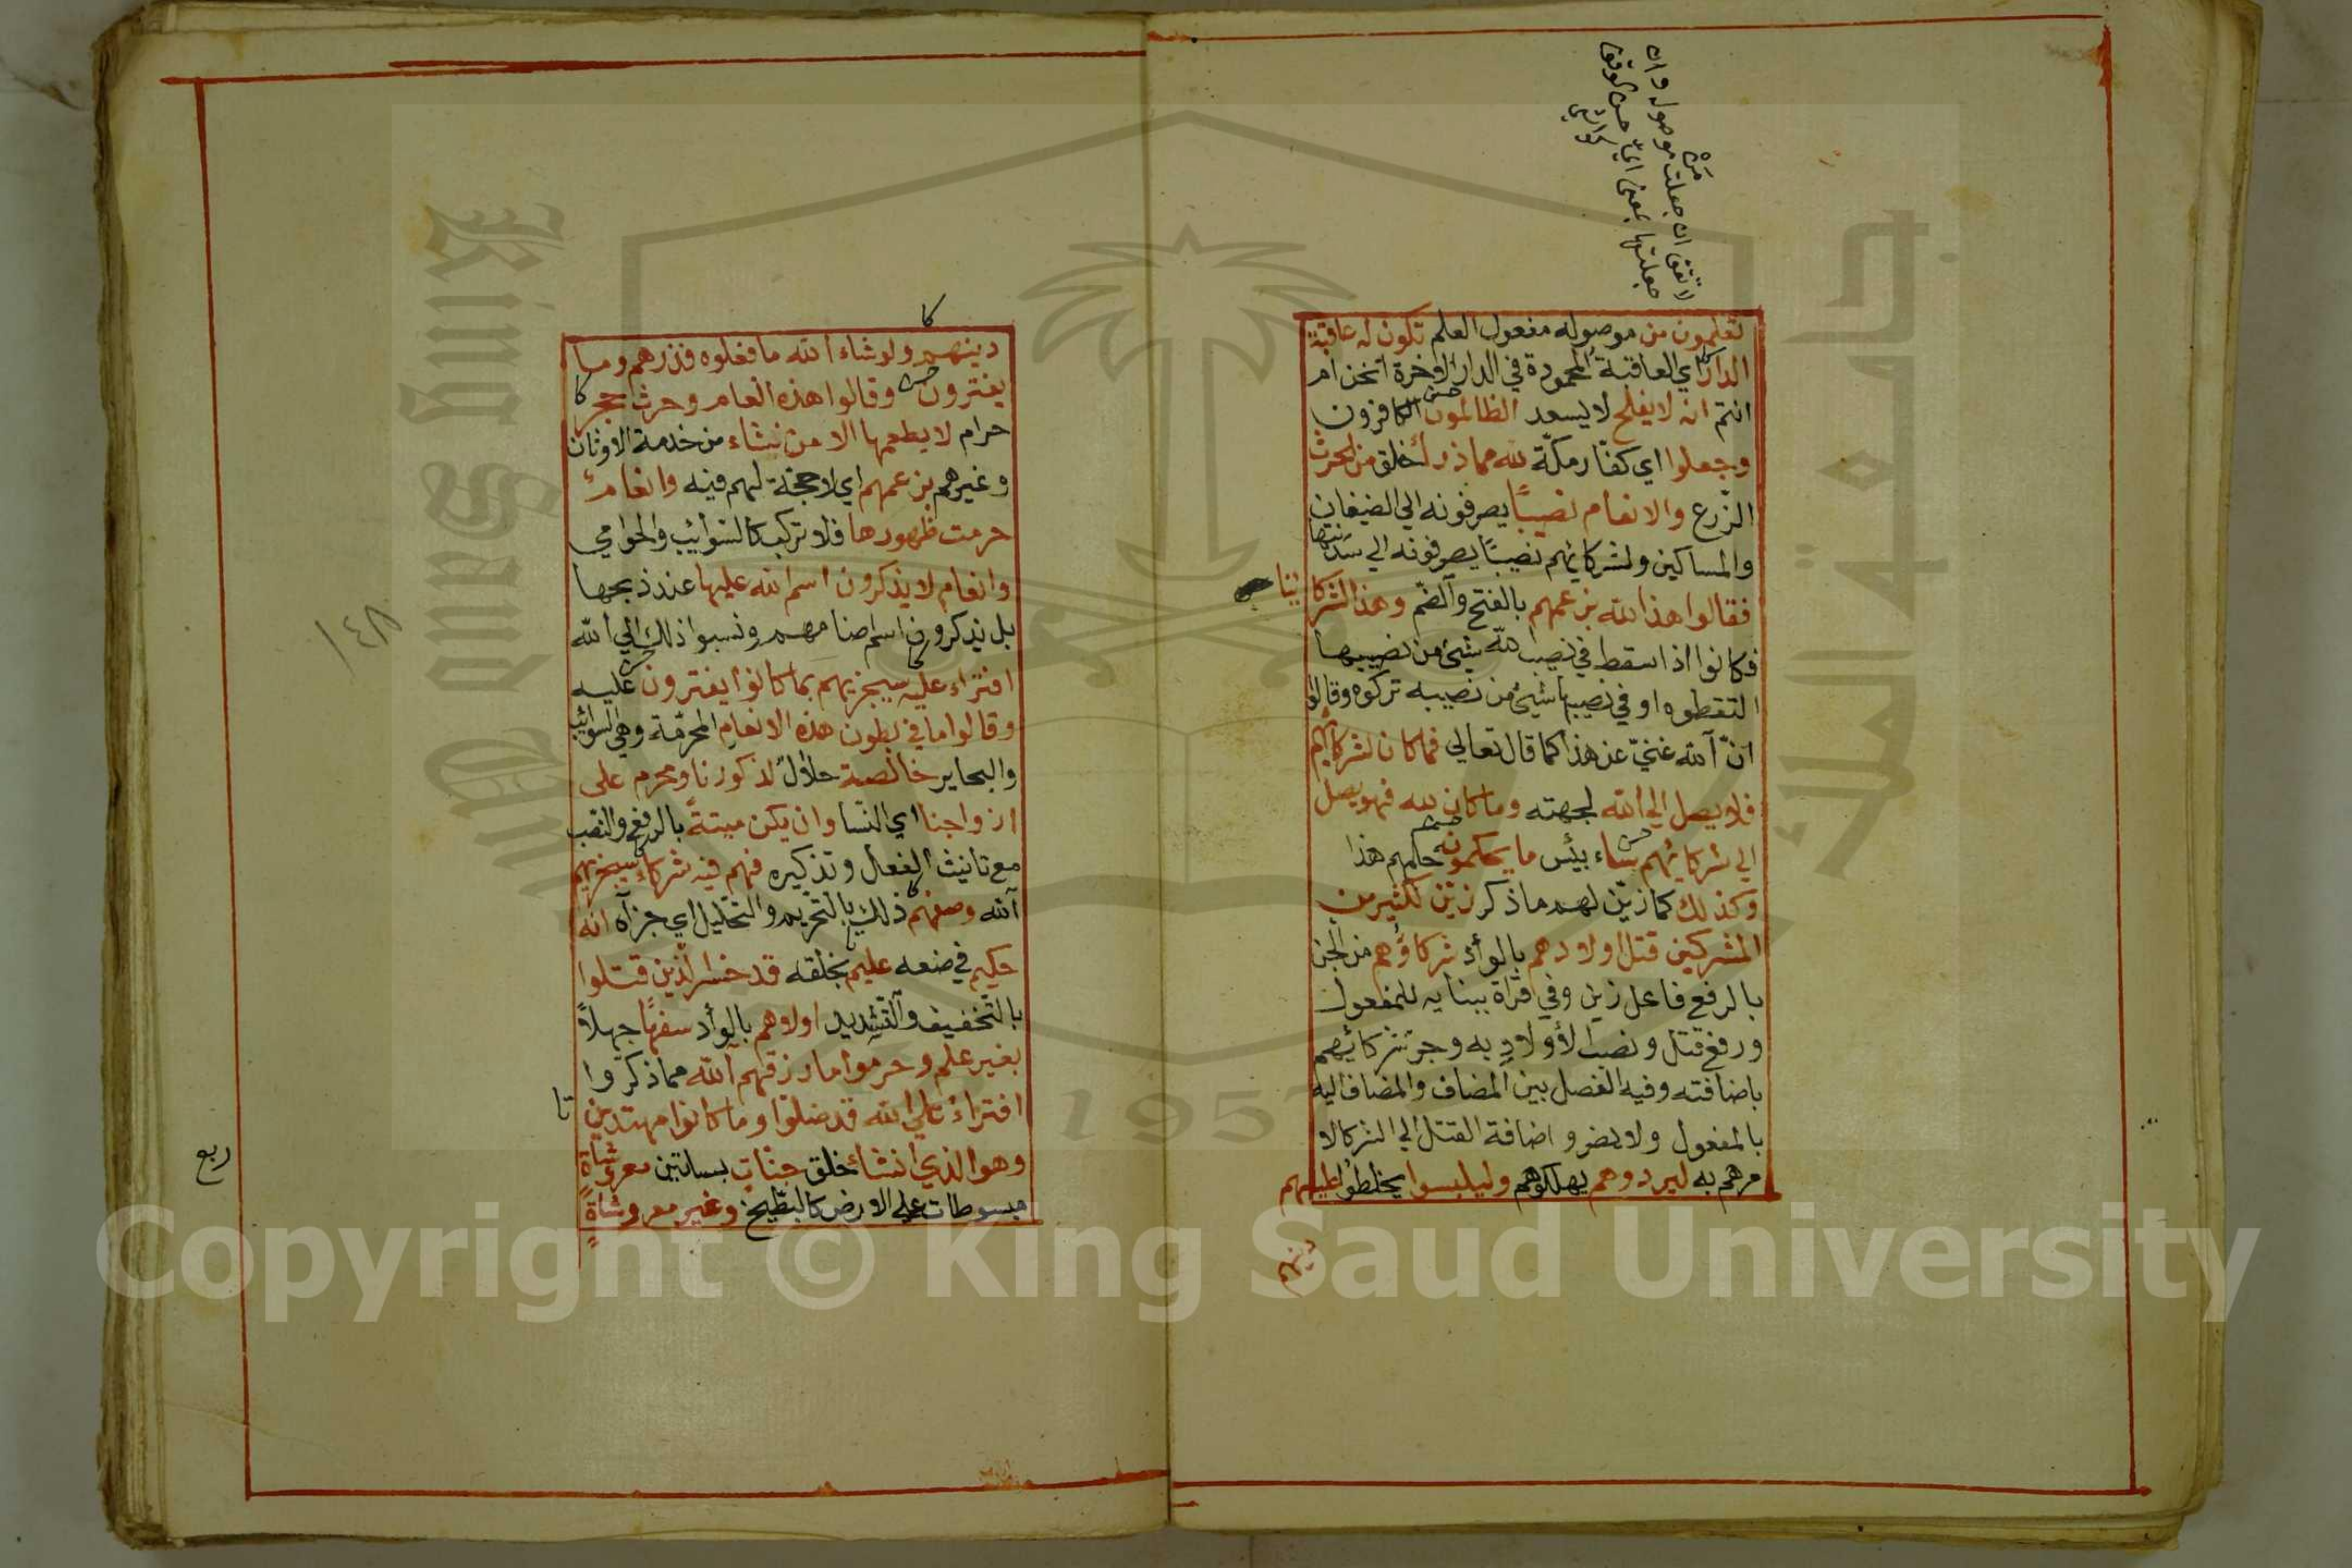 لا تقف ان جعلت موصول وان
جعلتها بمعنى اي حسن الوقف
كواشي
تعلمون من موصوله مفعول العلم تكون له عاقبة
الدار اي العاقبة المحمودة في الدار الاخرة انحن ام
انتم انه لا يفلح لا يسعد الظالمون الكافرون
وجعلوا اي كفار مكّة لله مما ذرأ خلق من الحرث
الزّرع والانعام نصيبًا يصرفونه الي الضيفان
والمساكين ولشركائهم نصيبًا يصرفونه الي سدنتها
فقالوا هذا لله بزعمهم بالفتح والضّم وهذا لشركائنا
فكانوا اذا سقط في نصيب لله شيئ من نصيبها
التقطوه او في نصيبها شيئ من نصيبه تركوه وقالوا
انّ الله غنيّ عن هذا كما قال تعالي فما كان لشركائهم
فلا يصل الي الله لجهته وما كان لله فهو يصل
الي شركائهم ساء بيئس ما يحكمون حكمهم هذا
وكذلك كما زيّن لهم ما ذكر زيّن لكثير من
المشركين قتل اولادهم بالوأد شركاؤهم من الجن
بالرفع فاعل زين وفي قراة ببنايه للمفعول
ورفع قتل ونصب الأولاد به وجر شركائهم
باضافته وفيه الفصل بين المضاف والمضاف اليه
بالمفعول ولا يضر واضافة القتل الي الشركا لا
مرهم به ليردوهم يهلكوهم وليلبسوا يخلطوا عليهم
دينهم
دينهم ولو شاء الله ما فعلوه فذرهم وما
يفترون وقالوا هذه انعام وحرث حجر
حرام لا يطعمها الا من نشاء من خدمة الاوثان
وغيرهم بزعمهم اي لا حجة لهم فيه وانعام
حرمت ظهورها فلا تركب كالسّوائيب والحوامي
وانعام لا يذكرون اسم الله عليها عند ذبحها
بل يذكرون اسم اصنامهم ونسبوا ذلك الي الله
افتراء عليه سيجزيهم بما كانوا يفترون عليه
وقالوا ما في بطون هذه الانعام المحرّمة وهي السوائب
والبحاير خالصة حلال لذكورنا ومحرم على
ازواجنا اي النسا وان يكن ميتةً بالرفع والنصب
مع تانيث الفعل وتذكيره فهم فيه شركاء سيجزيهم
الله وصفهم ذلك بالتحريم والتحليل اي جزآه انه
حكيم في صنعه عليم بخلقه قد خسر الّذين قتلوا
بالتّخفيف والتّشديد اولادهم بالوأد سفهًا جهلاً
بغير علم وحرموا ما رزقهم الله مما ذكروا
افتراء علي الله قد ضلّوا وما كانوا مهتدين
وهو الذي انشاء خلق جنّات بساتين معروشاة
مبسوطات علي الارض كالبطّيخ وغير معروشاة
ربع
١٤٨
King Saud University
جامعة الملك سعود
1957
Copyright © King Saud University